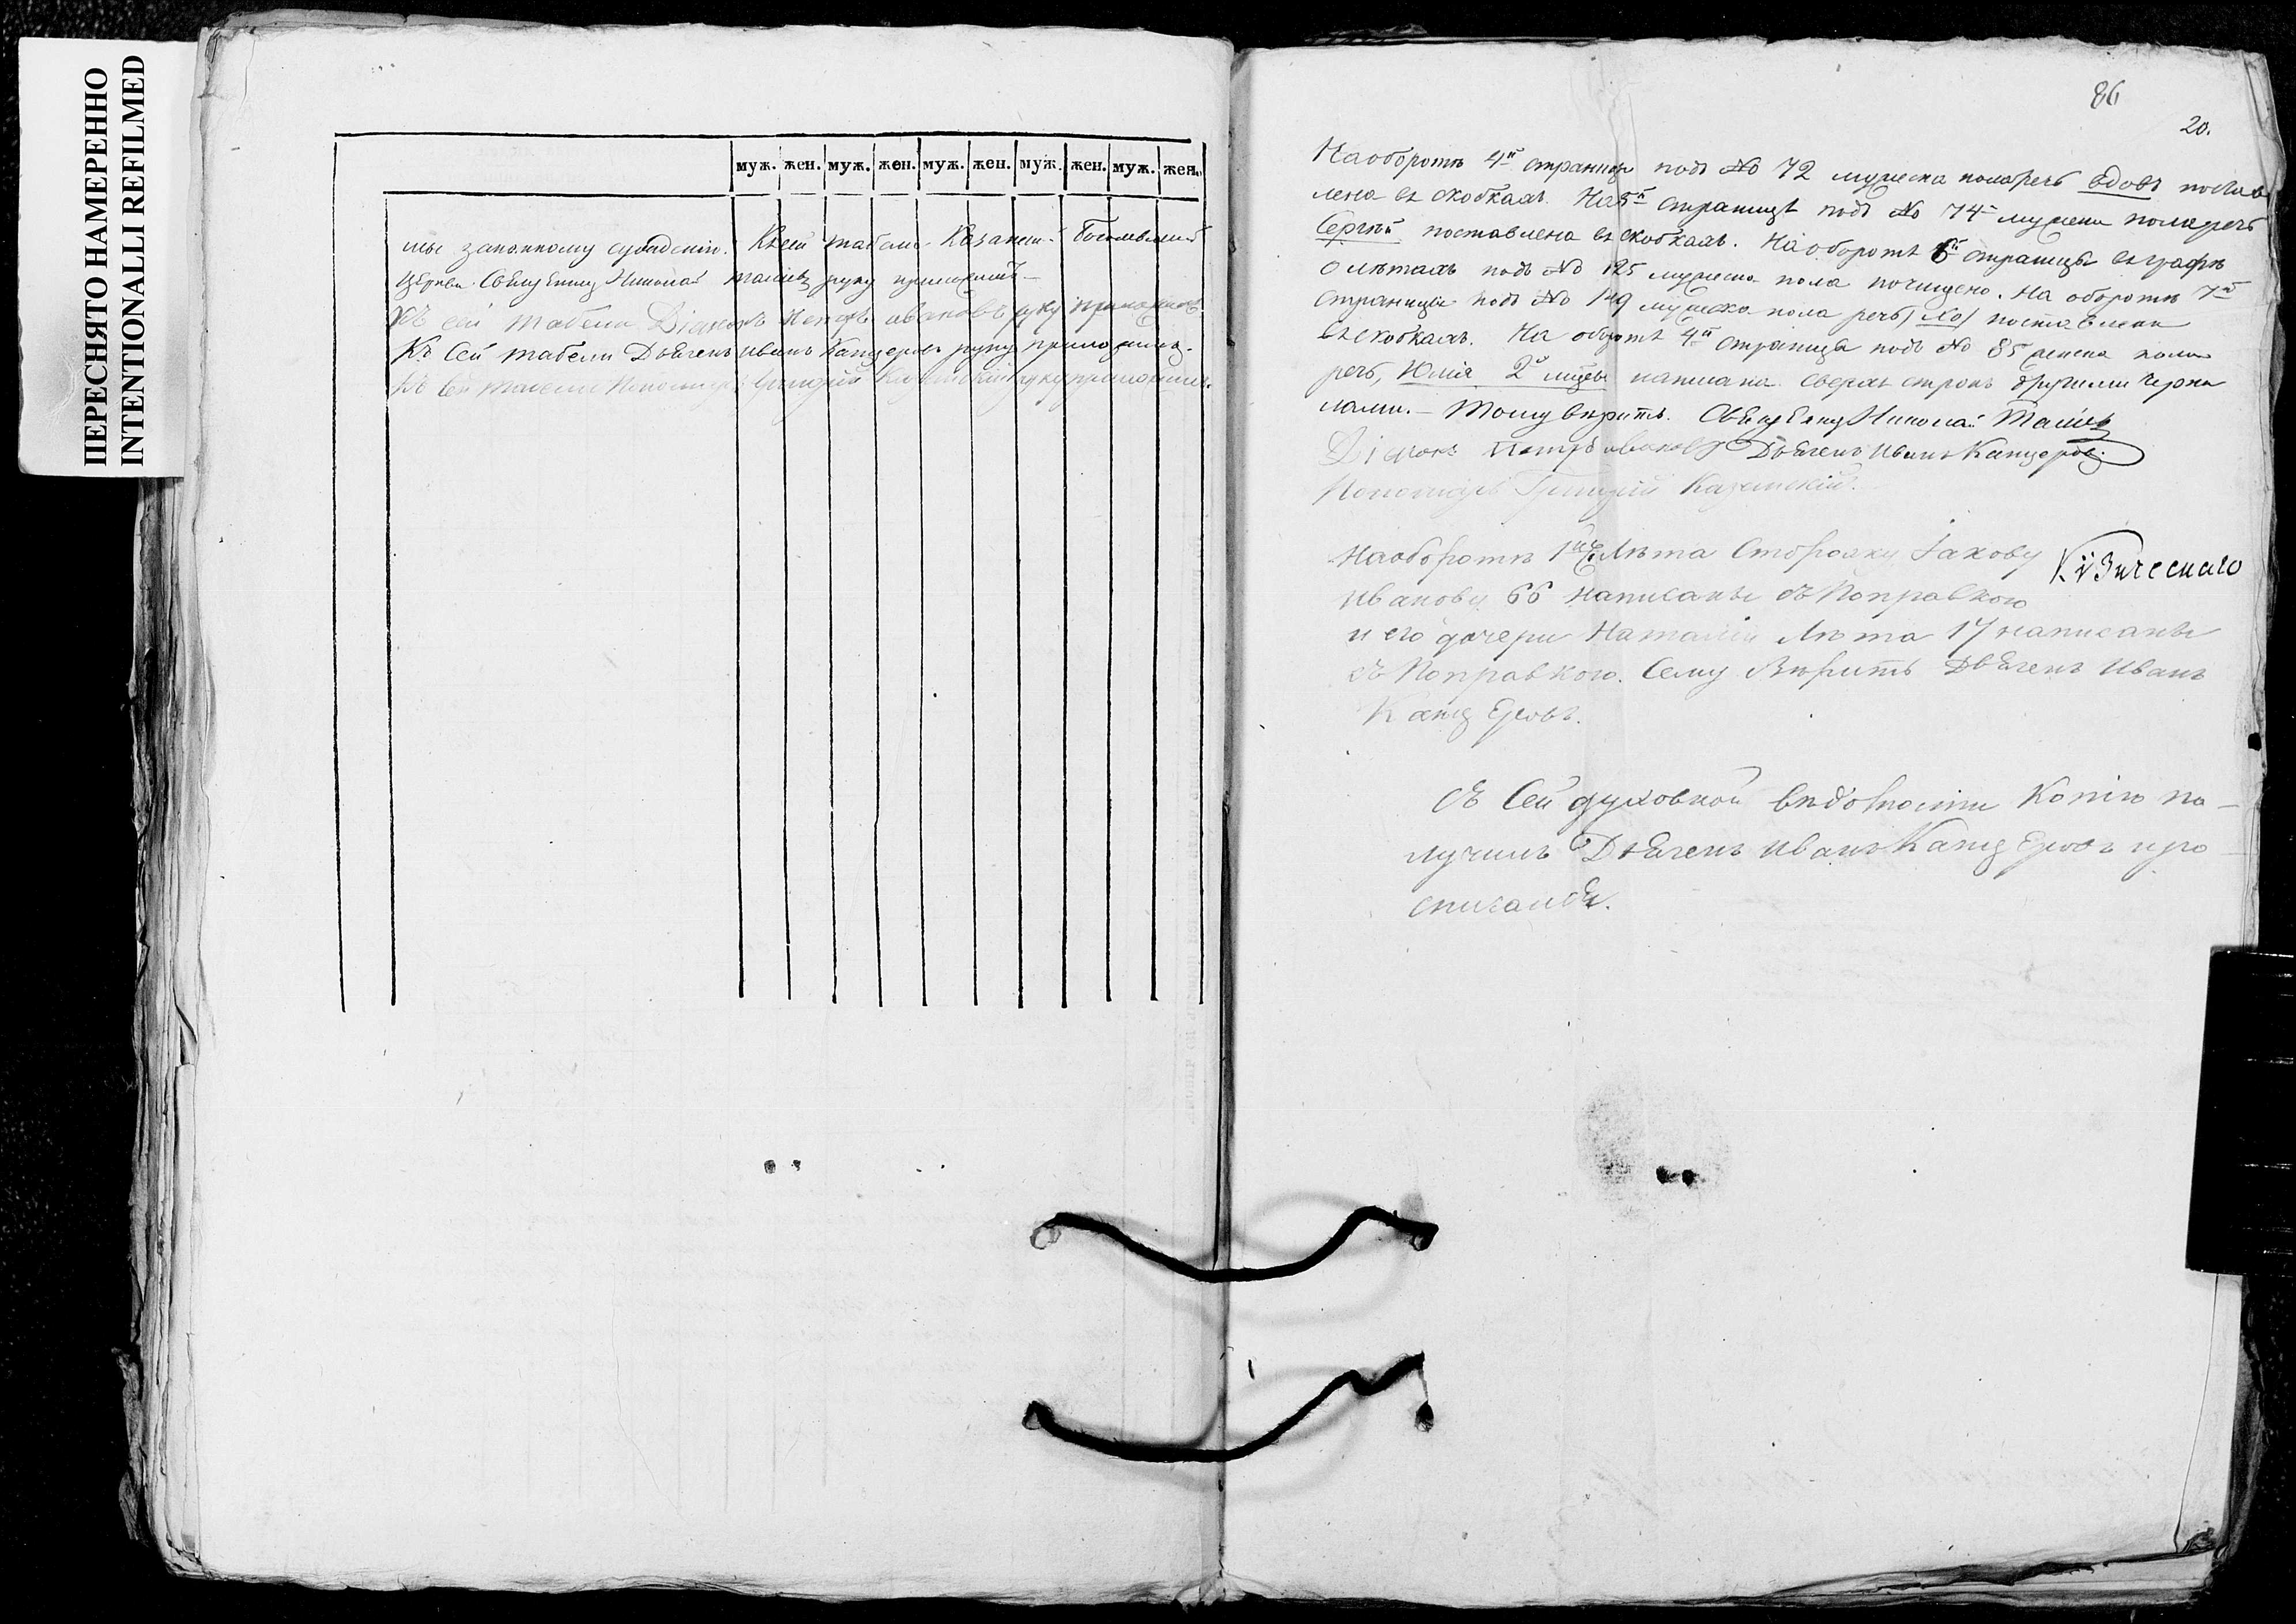 ПЕРЕСНЯТО НАМЕРЕННО
INTENTIONALLI REFILMED
муж. жен. муж. жен. муж. жен. муж. жен. муж. жен.
мы законному суждению. Къ сей табели Казанск.
Церкви Священникъ Николай руку приложилъ
Къ сей табели Діаконъ Петръ Ивановъ руку приложилъ
Къ Сей табели Дьячекъ Иванъ Канцеровъ руку приложилъ.
Къ сей табели Пономарь Григорій руку приложилъ.
86
20.
На оборотѣ 4й страницы подъ № 72 мужеска пола речь вдовъ постав
лена въ скобкахъ. На 5й страницѣ подъ № 74 мужеска пола речь
Сергѣй поставлена въ скобкахъ. На оборотѣ 6й страницы въ графѣ
о лѣтахъ подъ № 125 мужеска пола почищено. На оборотѣ 7й
страницы подъ № 149 мужеска пола речь поставлена
въ скобкахъ. На оборотѣ 4й страницы подъ № 85 женска пола
речь, Юлія 2 написана сверхъ строкъ другими черни
лами. – Тому вѣрить. Священникъ Николай
Діаконъ Петръ Ивановъ Дьячекъ Иванъ Канцеровъ
Пономарь Григорій
На оборотѣ 1й Лѣта Сторожу Іакову
Иванову 66 написаны съ Поправкою
и его дочери Наталіи Лѣта 17 написаны
съ Поправкою. Сему Вѣрить Дьячекъ Иванъ
Канцеровъ.
Съ Сей духовной вѣдомости Копію по-
лучилъ Дьячекъ Иванъ Канцеровъ и ро
списался.